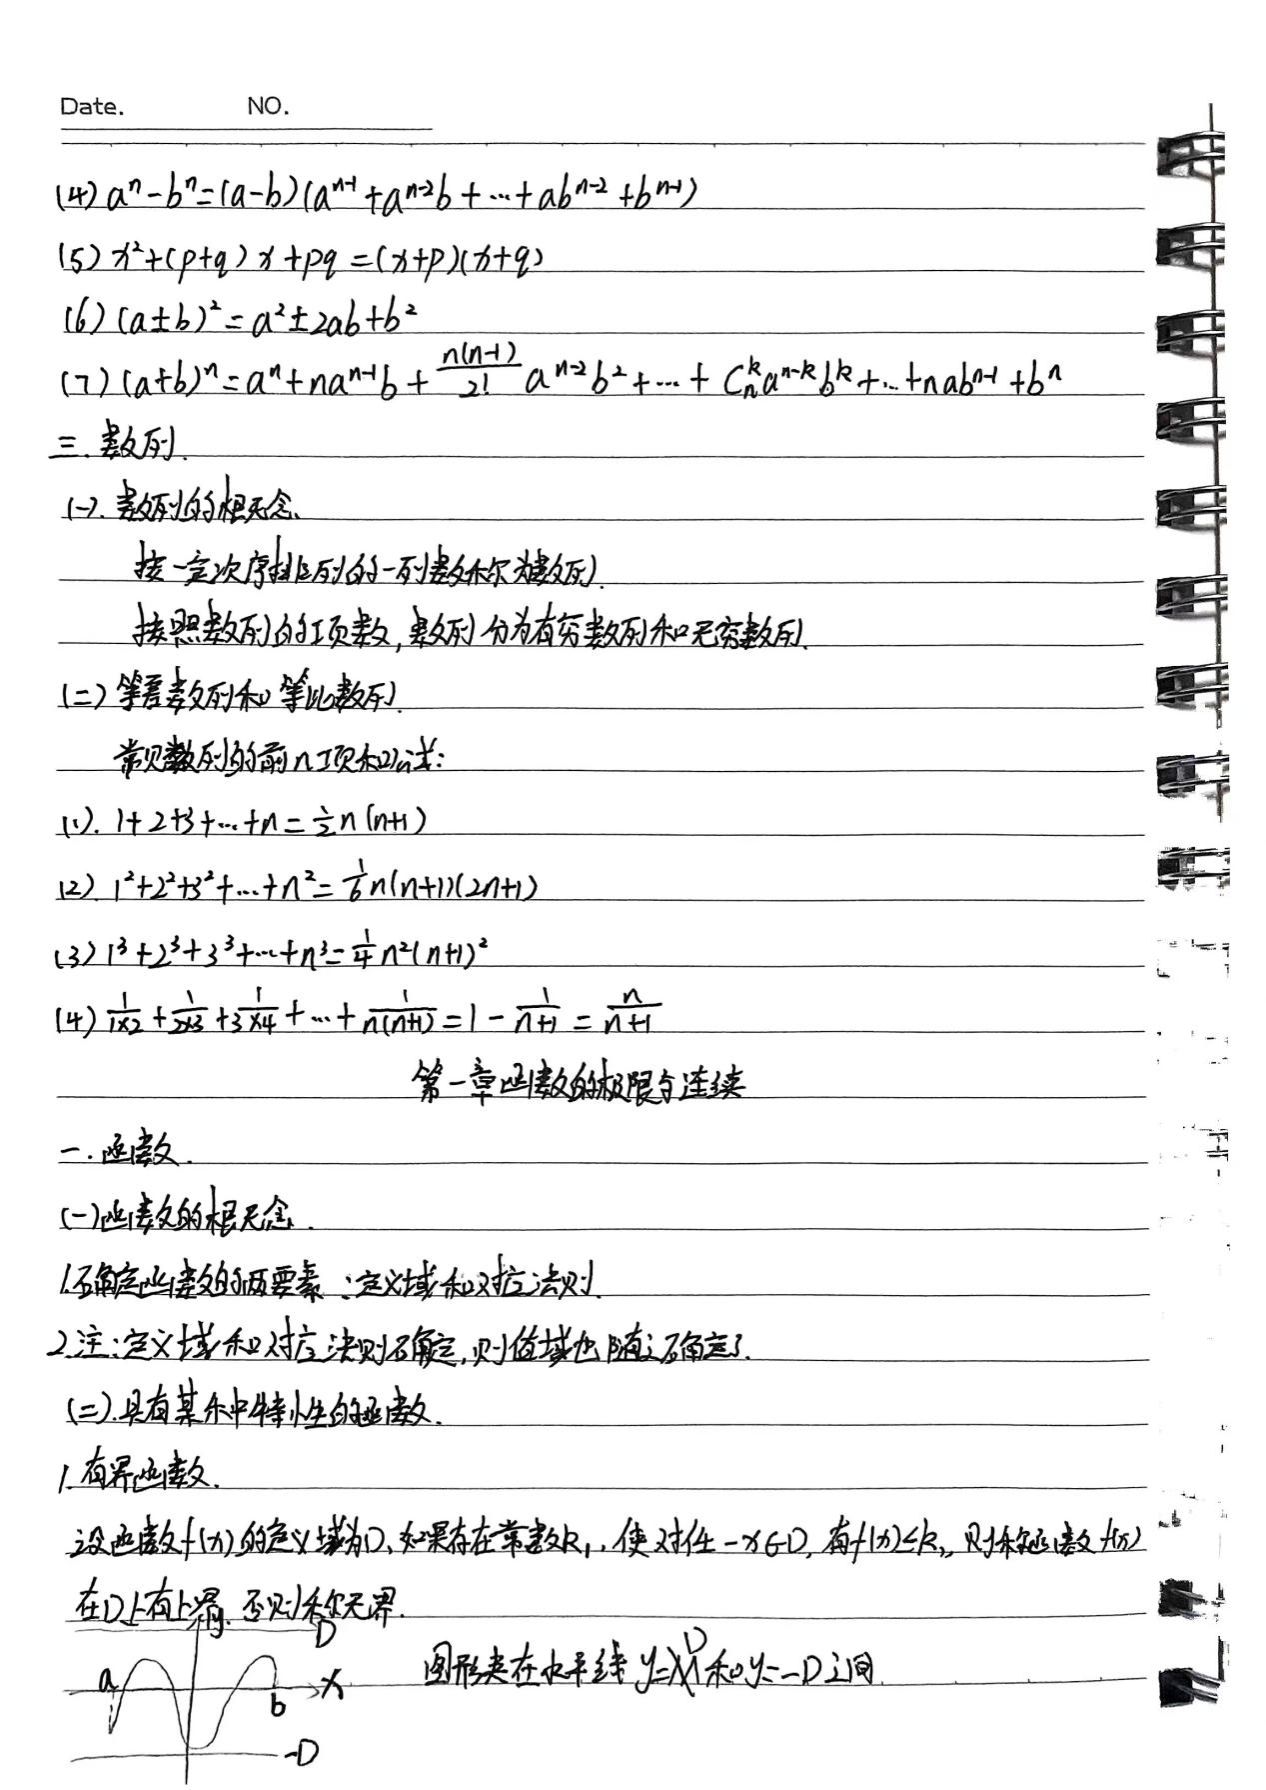 Date. NO.
(4) aⁿ-bⁿ=(a-b)(aⁿ⁻¹+aⁿ⁻²b+…+abⁿ⁻²+bⁿ⁻¹)
(5) x²+(p+q)x+pq=(x+p)(x+q)
(6) (a±b)²=a²±2ab+b²
(7) (a+b)ⁿ=aⁿ+naⁿ⁻¹b+n(n-1)/2! aⁿ⁻²b²+…+Cₙᵏaⁿ⁻ᵏbᵏ+…+nabⁿ⁻¹+bⁿ
三.数列.
(一).数列的概念.
按一定次序排列的一列数称为数列.
按照数列的项数,数列分为有穷数列和无穷数列.
(二)等差数列和等比数列.
常见数列的前n项和公式:
(1).1+2+3+…+n=½n(n+1)
(2).1²+2²+3²+…+n²=1/6n(n+1)(2n+1)
(3)1³+2³+3³+…+n³=¼n²(n+1)²
(4)1/1×2+1/2×3+1/3×4+…+1/n(n+1)=1-1/n+1=n/n+1
第一章函数的极限与连续
一.函数.
(一)函数的概念.
1.确定函数的两要素:定义域和对应法则.
2.注:定义域和对应法则确定,则值域也随之确定了.
(二).具有某种特性的函数.
1.有界函数.
设函数f(x)的定义域为D,如果存在常数k₁,使对任一x∈D,有f(x)≤k₁,则称函数f(x)
在D上有上界.否则称无界.
y D
a b x
图形夹在水平线y=D和y=-D之间
-D